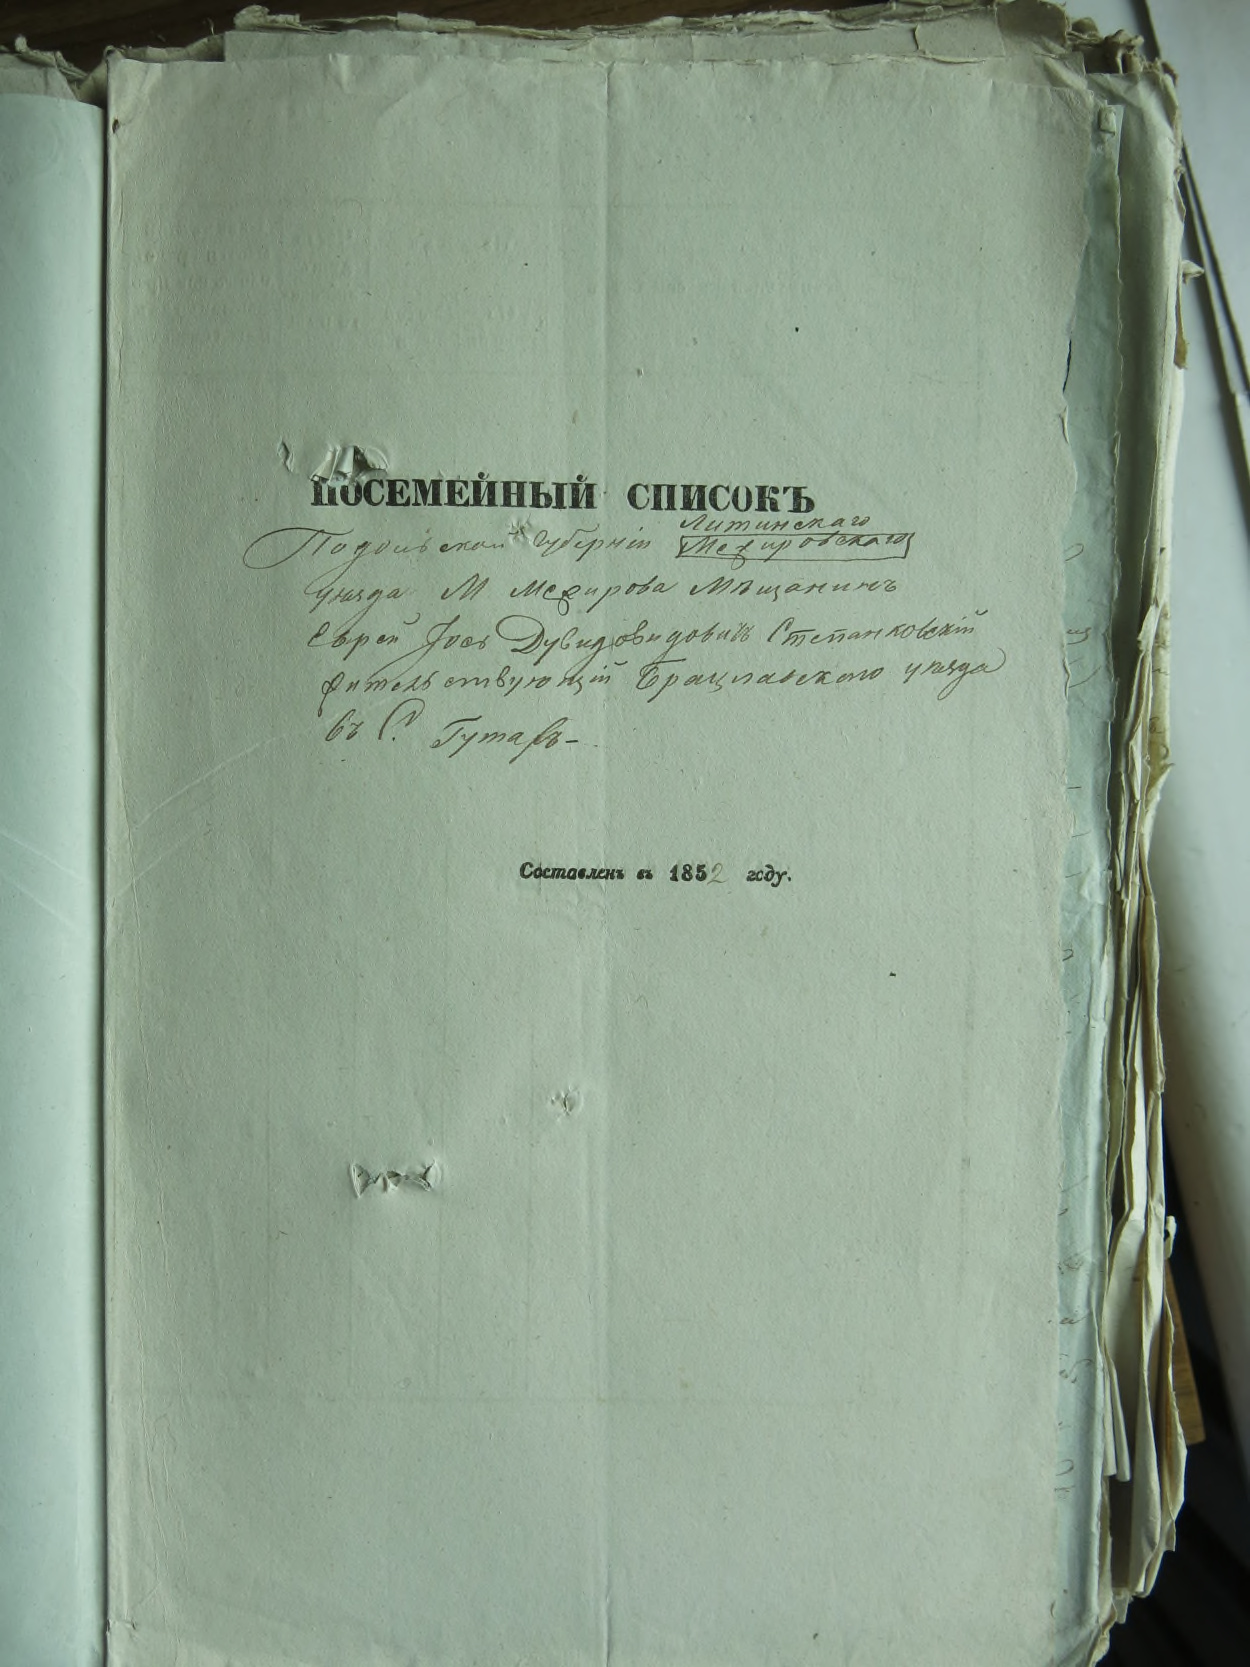 ПОСЕМЕЙНЫЙ СПИСОКЪ
Литинскаго
Подольской Губерніи Межировскаго
уезда М Межирова Мѣщанинъ
Еврей Іось Дувидовичъ Степанковскій
жительствующій Брацлавского уезда
въ С. Гутахъ
Составленъ въ 1852 году.